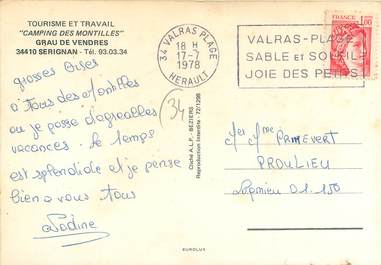 TOURISME ET TRAVAIL
"CAMPING DES MONTILLES"
GRAU DE VENDRES
34410 SERIGNAN - Tél. 93.03.34
34 VALRAS PLAGE
18 H
17-7
1978
HERAULT
VALRAS-PLAGE
SABLE ET SOLEIL
JOIE DES PETITS
FRANCE
1,00
grosses Bises
à tous des Montilles
ou je passe d'agréables
vacances. le temps
est splendide et je pense
bien a vous tous
34
Cliché A.L.P. - BEZIERS
Reproduction Interdite - 72/1298
Mme PRIMEVERT
PROULIEU
Lagnieu 01.150
EUROLUX